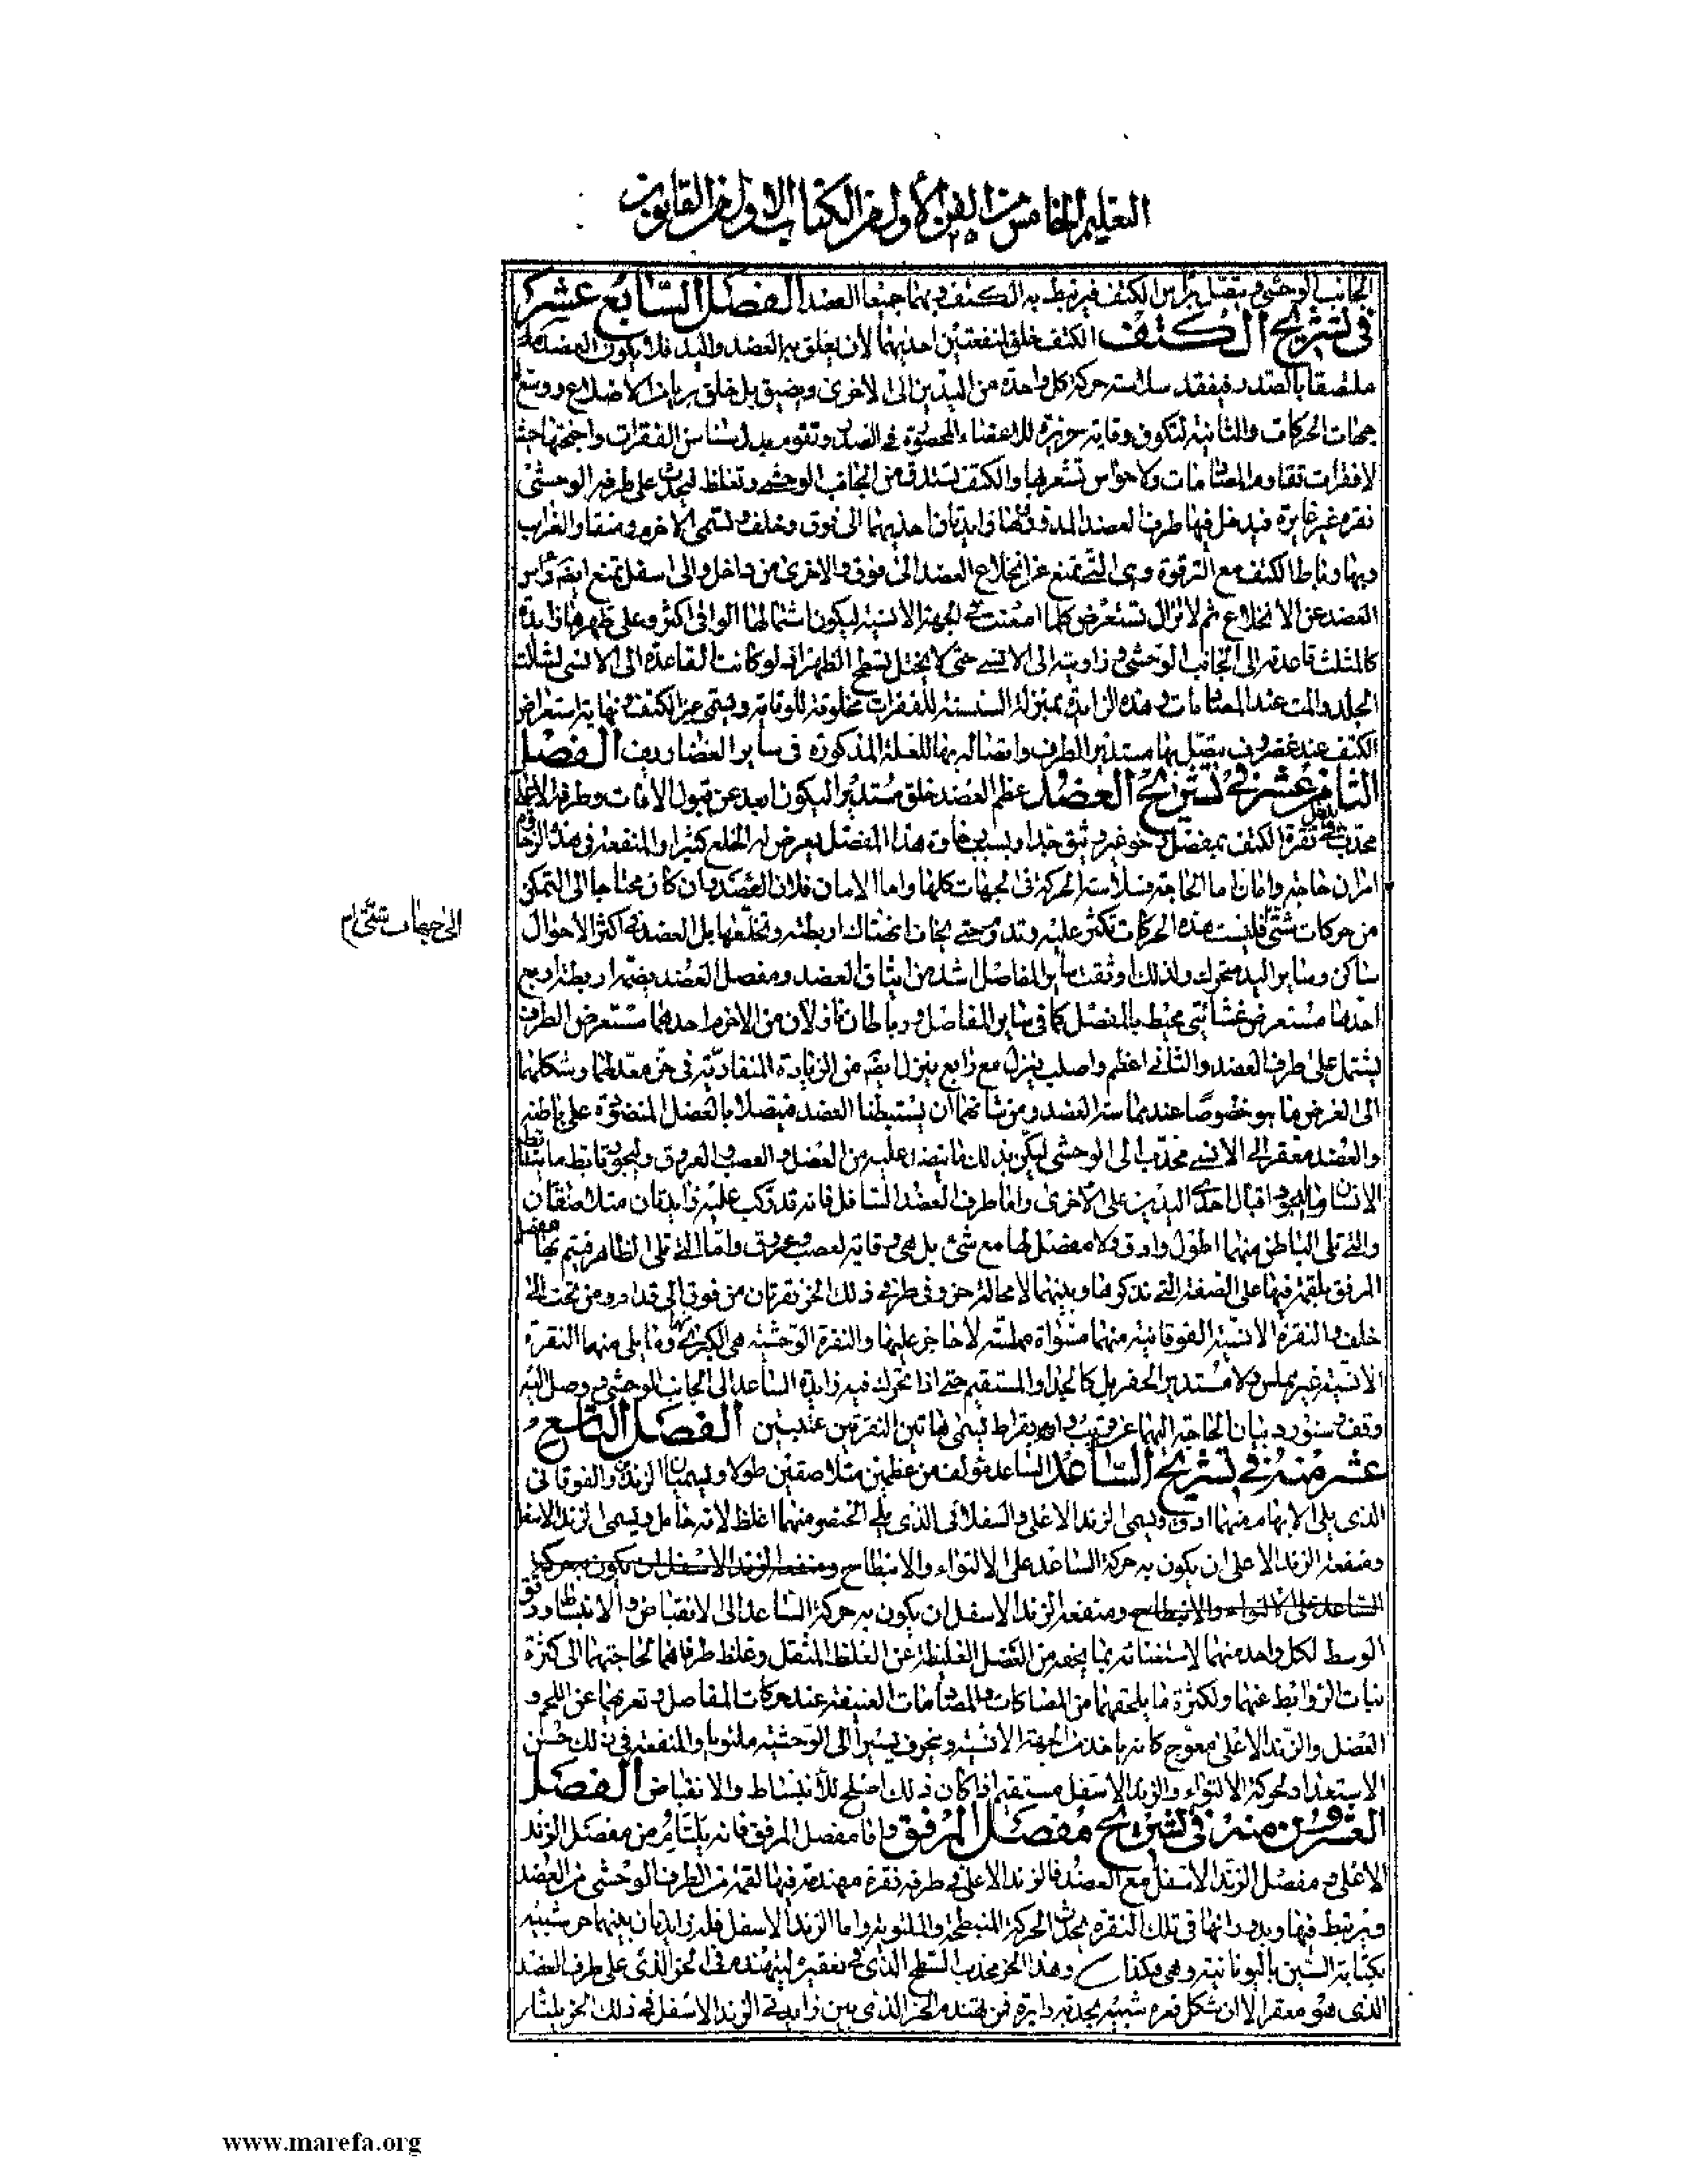 التعليم الخامس من الفن الأول من الكتاب الاول من القانون
الجانب الوحشي ويتصل براس الكتف فيرتبط به الكتف وبهما جميعا العضد الفصل السابع عشر
فى تشريح الكتف الكتف خلق لمنفعتين احديهما لأن يعلق به العضد واليد فلا يكون العضد
ملتصقا بالصدر فيفقد سلاسة حركة كل واحدة من اليدين الى الاخرى ويضيق بل خلق بريا من الاضلاع ووسع
جهات الحركات والثانية لتكون وقاية حريزة للاعضاء المحصورة فى الصدر وتقوم بدل سناسن الفقرات واجنحتها حيث
لا فقرات تقاوم المصادمات ولا حواس تشعر بها والكتف يستدق من الجانب الوحشى وتغلظ فيحدث على طرفه الوحشى
نقرة غير غايرة فيدخل فيها طرف العضد المدور ولها زايدتان احديهما الى فوق وخلف وتسمى الاخرم ومنقار الغراب
وبها رباط الكتف مع الترقوة وهى التى تمنع عن انخلاع العضد الى فوق والاخرى من داخل والى اسفل تمنع ايضه راس
العضد عن الانخلاع ثم لا تزال تستعرض كلما امعنت فى الجهة الانسية ليكون اشتمالها الواقى اكثر وعلى ظهره زايدة
كالمثلث قاعدته الى الجانب الوحشى وزاويته الى الانسى حتى لا يختل تسطح الظهر اذ لو كانت القاعدة الى الانسى لشلت
الجلد والمت عند المصادمات وهذه الزايدة بمنزلة السنسنة للفقرات مخلوقة للوقاية وتسمى عير الكتف ونهاية استعراض
الكتف عند غضروف يتصل بها مستدير الطرف واتصاله بها للعلة المذكورة فى ساير الغضاريف الفصل
الثامن عشر فى تشريح العضد عظم العضد خلق مستديرا ليكون ابعد عن قبول الافات وطرفه الاعلى
محدب يدخل فى نقرة الكتف بمفصل رخو غير وثيق جدا وبسبب رخاوة هذا المفصل يعرض له الخلع كثيرا والمنفعة فى هذه الرخاوة
امران حاجة وامان اما الحاجة فسلاسة الحركة فى الجهات كلها واما الامان فلان العضد وان كان محتاجا الى التمكن
من حركات شتى فليست هذه الحركات تكثر عليه وتدوم حتى يخاف انهتاك اربطته وتخلعها بل العضد فى اكثر الاحوال
الى جهات شتى
ساكن وساير اليد متحرك ولذلك وثقت ساير المفاصل اشد من ايثاق العضد ومفصل العضد يضمه اربطة اربع
احدها مستعرض غشائى محيط بالمفصل كما فى ساير المفاصل ورباطان نازلان من الاخرم احدهما مستعرض الطرف
يشتمل على طرف العضد والثانى اعظم واصلب ينزل مع رابع ينزل ايضه من الزيادة المنقارية فى حز معد لهما وشكلهما
الى العرض ما هو خصوصا عند مماسة العضد ومن شانهما ان يستبطنا العضد فيتصلا بالعضل المنضودة على باطنه
والعضد مقعر الى الانسى محدب الى الوحشى ليكن بذلك ما ينتضد عليه من العضل والعصب والعروق وليجود تابط ما يتابطه
الانسان وليجود اقبال احدى اليدين على الاخرى واما طرف العضد السافل فانه قد ركب عليه زايدتان متلاصقتان
والتى تلى الباطن منهما اطول وادق ولا مفصل لها مع شئ بل هى وقاية لعصب وعروق واما التى تلى الظاهر فيتم بها مفصل
المرفق بلقمة فيها على الصفة التى نذكرها وبينهما لا محالة حز وفى طرفى ذلك الحز نقرتان من فوق الى قدام ومن تحت الى
خلف والنقرة الانسية الفوقانية منهما مسواة مملسة لا حاجز عليها والنقرة الوحشية هى الكبرى وما يلى منها النقرة
الانسية غير مملس ولا مستدير الحفر بل كالجدار المستقيم حتى اذا تحرك فيه زايدة الساعد الى الجانب الوحشى ووصل اليه
وقف وسنورد بيان الحاجة اليهما عن قريب وبقراط يسمى هاتين النقرتين عتبتين الفصل التاسع
عشر منه فى تشريح الساعد الساعد مؤلف من عظمين متلاصقين طولا ويسميان الزندين والفوقانى
الذى يلى الابهام منهما ادق ويسمى الزند الاعلى والسفلانى الذى يلى الخنصر منهما اغلظ لانه حامل ويسمى الزند الاسفل
ومنفعة الزند الاعلى ان يكون به حركة الساعد على الالتواء والانبطاح ومنفعة الزند الاسفل ان يكون به حركة
الساعد على الالتواء والانبطاح ومنفعة الزند الاسفل ان يكون به حركة الساعد الى الانقباض والانبساط ودقق
الوسط لكل واحد منهما لاستغنائه بما يحفه من العضل الغليظة عن الغلظ المثقل وغلظ طرفاهما لحاجتهما الى كثرة
نبات الروابط عنهما ولكثرة ما يلحقهما من المصاكات والمصادمات العنيفة عند حركات المفاصل وتعريهما عن اللحم و
العضل والزند الاعلى معوج كانه ياخذ من الجهة الانسية وينحرف يسيرا الى الوحشية ملتويا والمنفعة فى ذلك حسن
الاستعداد لحركة الالتواء والزند الاسفل مستقيم اذ كان ذلك اصلح للانبساط والانقباض الفصل
العشرون منه فى تشريح مفصل المرفق واما مفصل المرفق فانه يلتام من مفصل الزند
الاعلى ومفصل الزند الاسفل مع العضد فالزند الاعلى فى طرفه نقرة مهندمة فيها لقمة من الطرف الوحشى من العضد
ويرتبط فيها وبدورانها فى تلك النقرة يحدث الحركة المنبطحة والملتوية واما الزند الاسفل فله زايدتان بينهما حز شبيه
بكتابة السين باليونانية وهى هكذا وهذا الحز محدب السطح الذى فى تقعيره ليتهندم فى الحز الذى على طرف العضد
الذى هو مقعر الا ان شكل قعره شبيه بحدبة دايرة فمن تهندم الحز الذى بين زايدتى الزند الاسفل فى ذلك الحز يلتئام
www.marefa.org